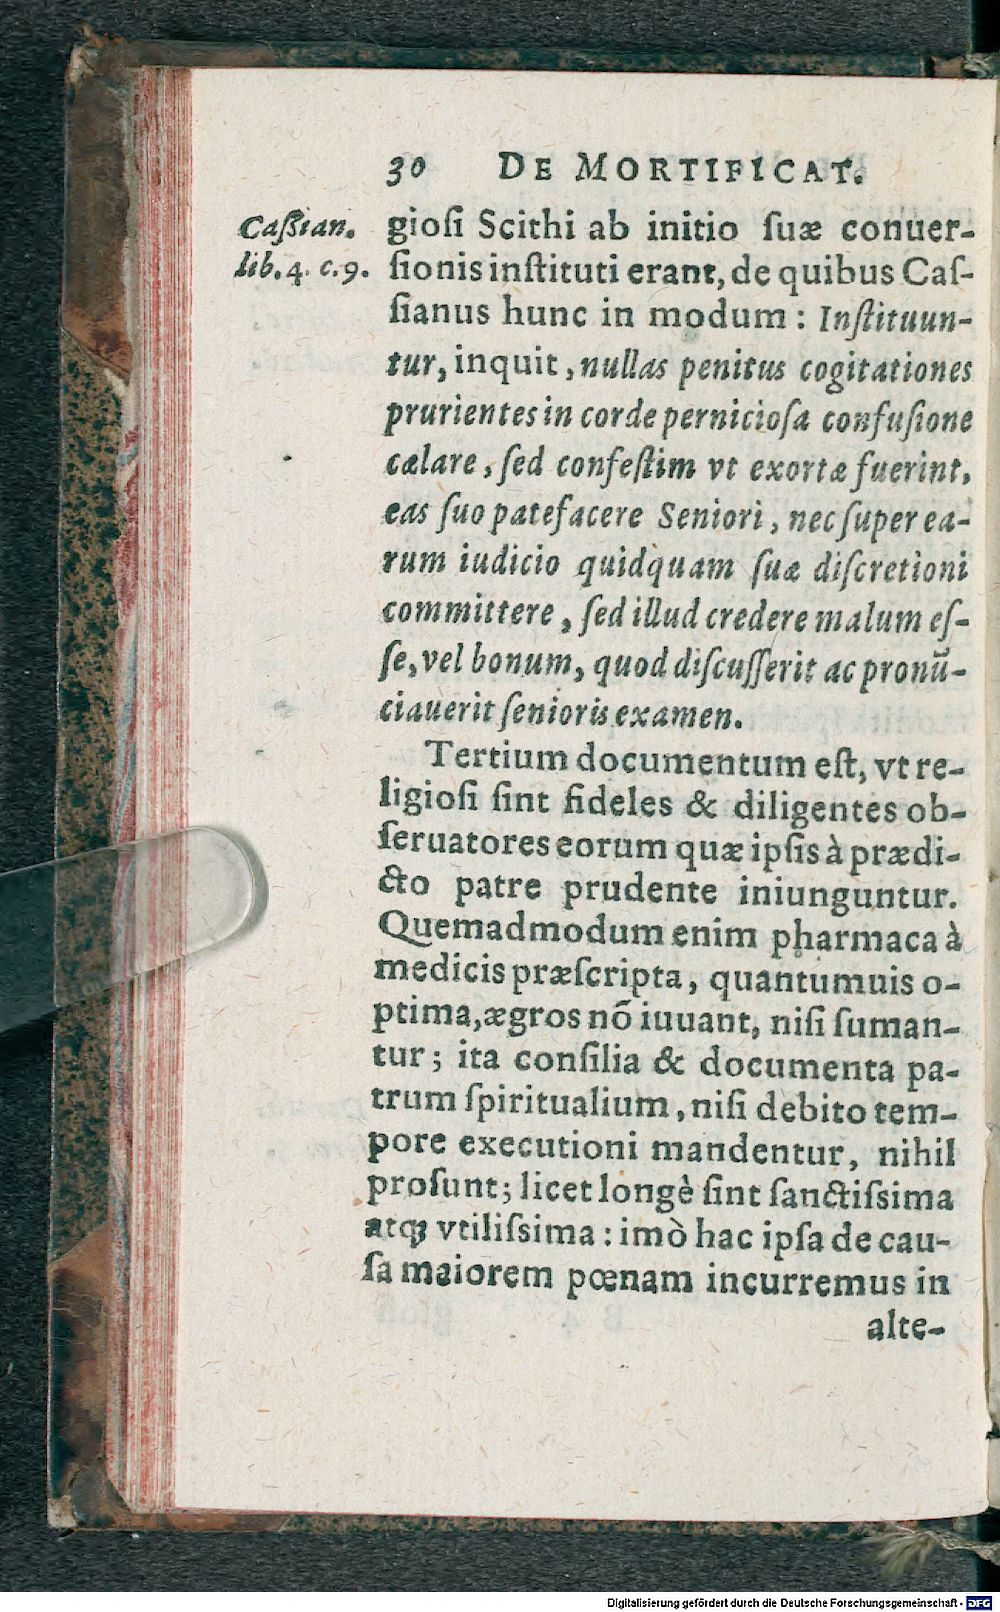 30 DE MORTIFICAT.
Caßian.
lib. 4. c. 9.
gioſi Scithi ab initio ſuæ conuer-
ſionis inſtituti erant, de quibus Caſ-
ſianus hunc in modum : Inſtituun-
tur, inquit, nullas penitus cogitationes
prurientes in corde pernicioſa confuſione
cælare, ſed confeſtim vt exortæ fuerint,
eas ſuo patefacere Seniori, nec ſuper ea-
rum iudicio quidquam ſuæ diſcretioni
committere, ſed illud credere malum eſ-
ſe, vel bonum, quod diſcuſſerit ac pronũ-
ciauerit ſenioris examen.
Tertium documentum eſt, vt re-
ligioſi ſint fideles & diligentes ob-
ſeruatores eorum quæ ipſis à prædi-
cto patre prudente iniunguntur.
Quemadmodum enim pharmaca à
medicis præſcripta, quantumuis o-
ptima, ægros nõ iuuant, niſi ſuman-
tur ; ita conſilia & documenta pa-
trum ſpiritualium, niſi debito tem-
pore executioni mandentur, nihil
proſunt; licet longè ſint ſanctiſsima
atq; vtiliſsima : imò hac ipſa de cau-
ſa maiorem pœnam incurremus in
alte-
Digitalisierung gefördert durch die Deutsche Forschungsgemeinschaft - DFG